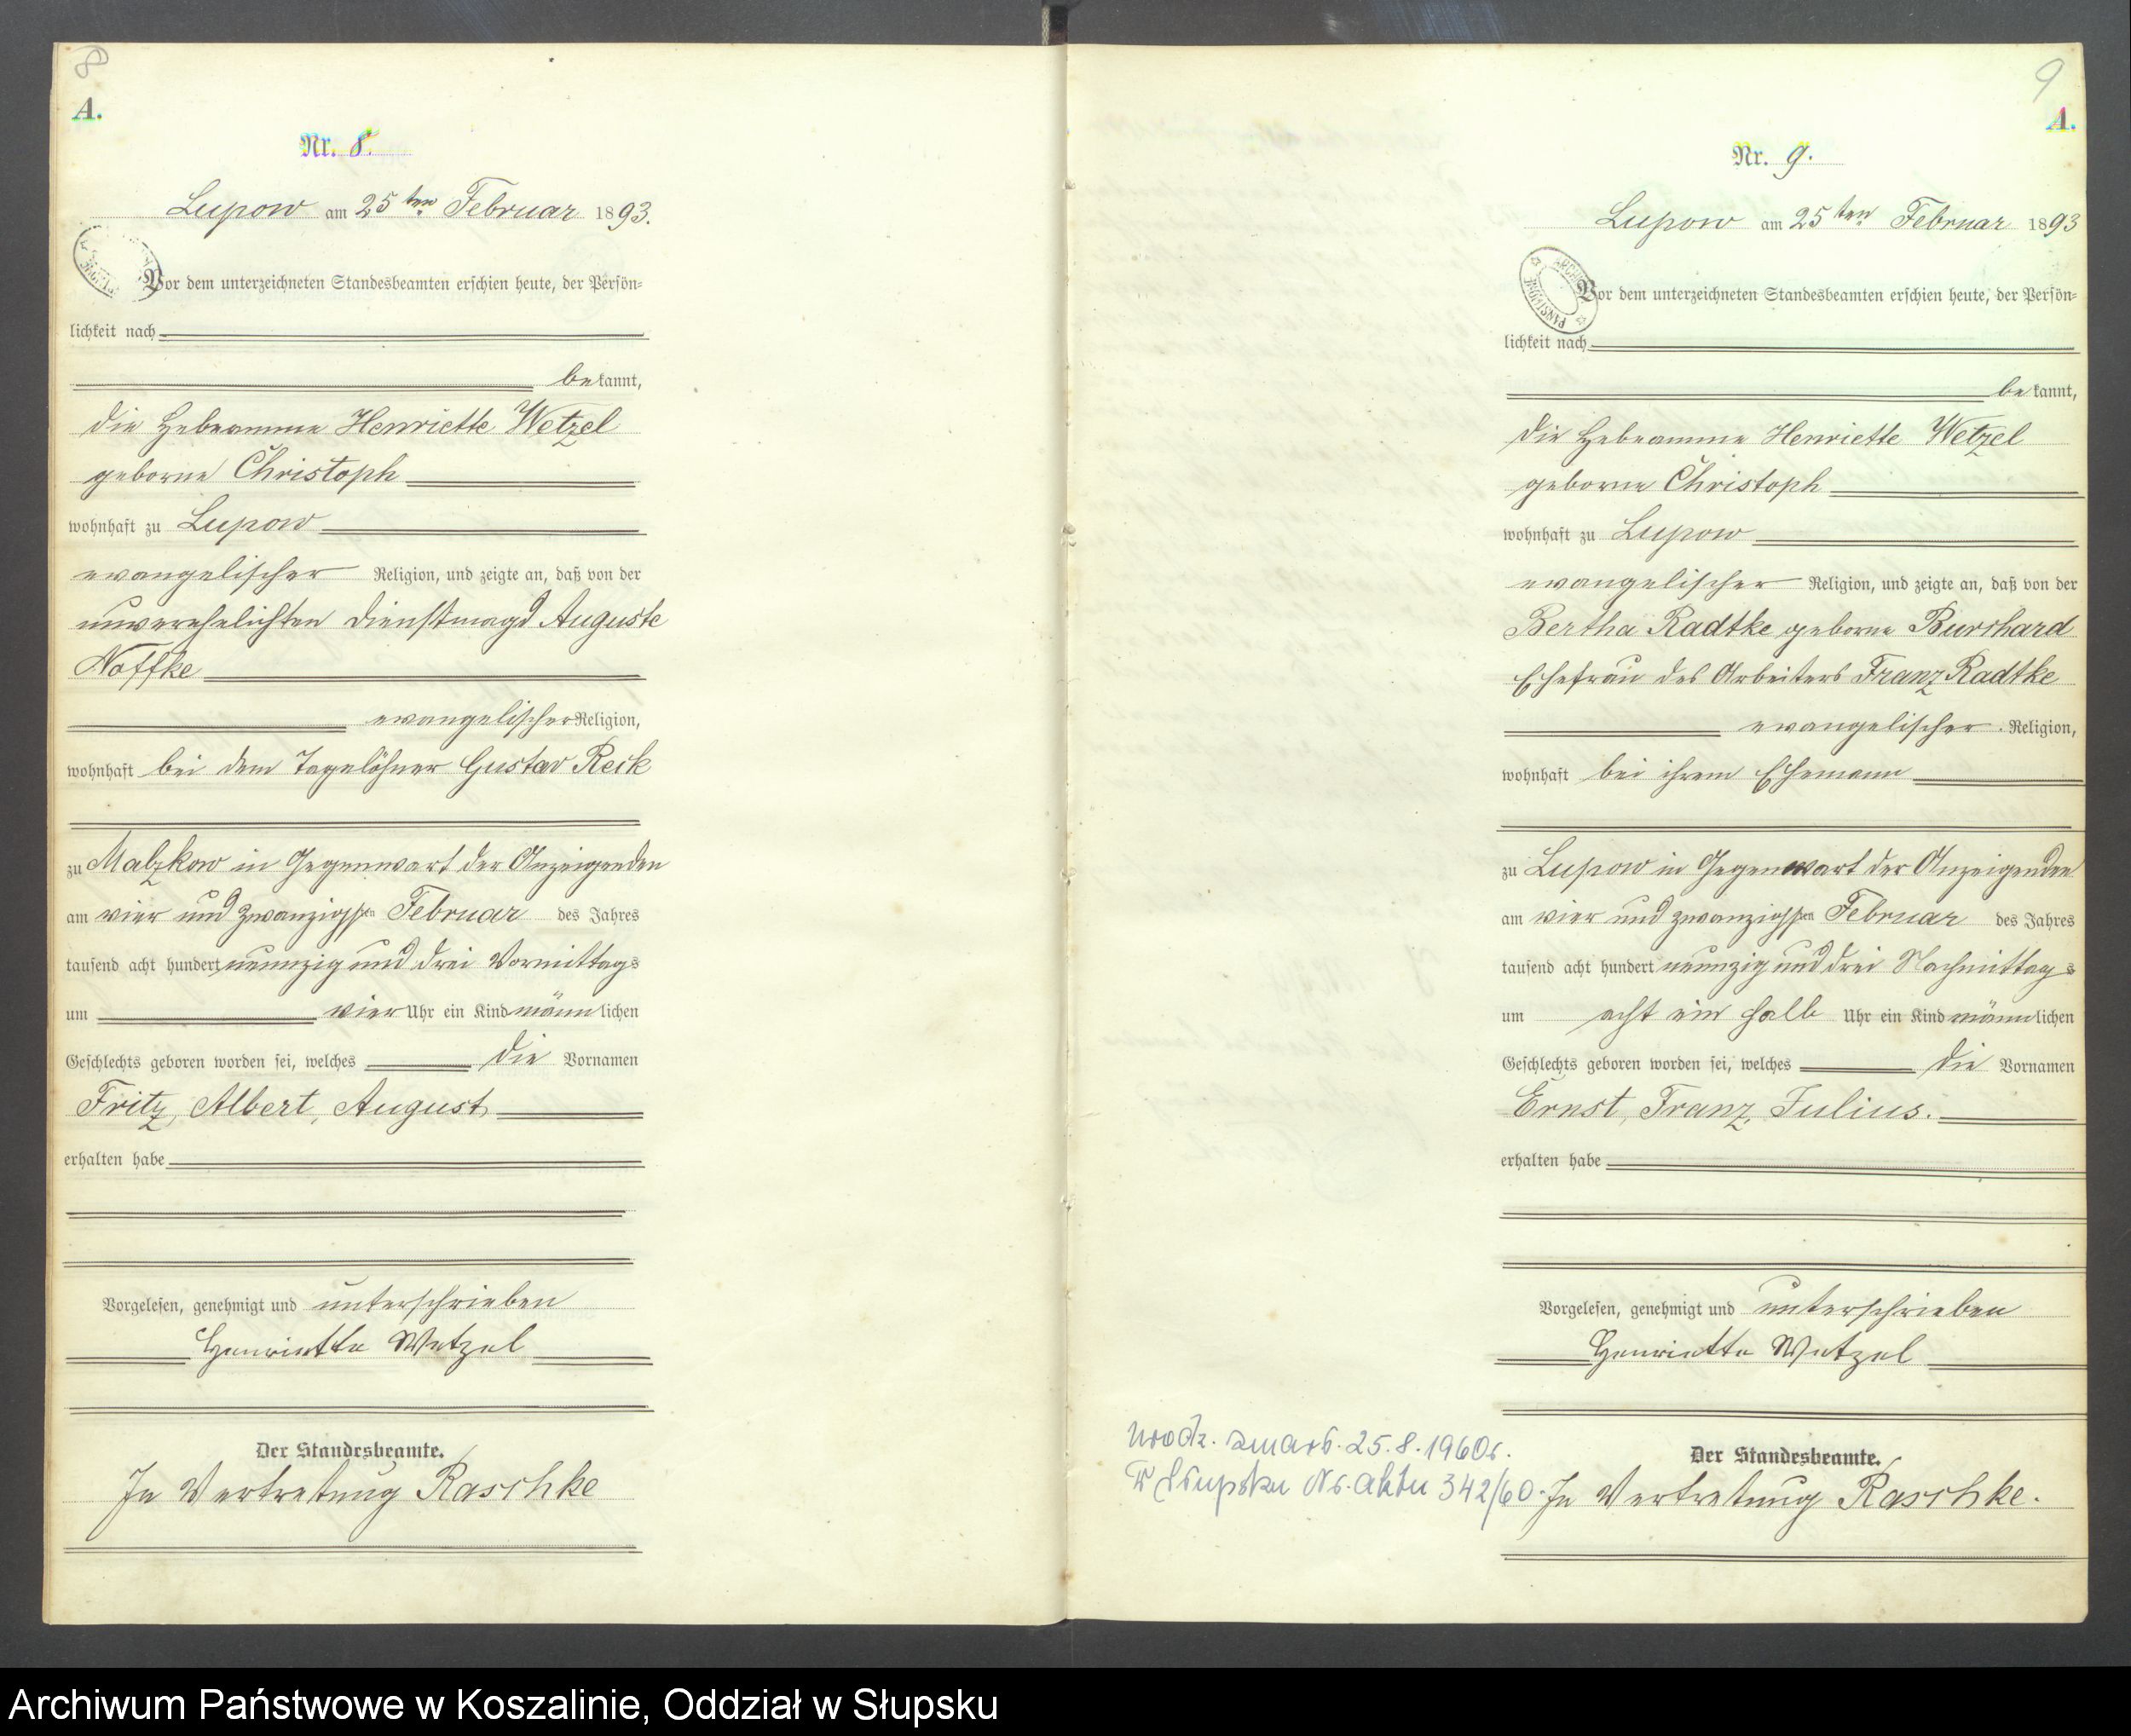 8
A.
Nr. 8.
Lupow am 25ten Februar 1893.
Vor dem unterzeichneten Standesbeamten erschien heute, der Persön=
lichkeit nach
bekannt,
die Hebeamme Henriette Wetzel
geborne Christoph
wohnhaft zu Lupow
evangelischer Religion, und zeigte an, daß von der
unverehelichten Dienstmagd Auguste
Noffke
evangelischer Religion,
wohnhaft bei dem Tagelöhner Gustav Reik
zu Malzkow in Gegenwart der Anzeigenden
am vier und zwanzigsten Februar des Jahres
tausend acht hundert neunzig und drei Vormittags
um vier Uhr ein Kind männlichen
Geschlechts geboren worden sei, welches die Vornamen
Fritz, Albert, August,
erhalten habe
Vorgelesen, genehmigt und unterschrieben
Henriette Wetzel
Der Standesbeamte.
In Vertretung Raschke
9
A.
Nr. 9.
Lupow am 25ten Februar 1893
Vor dem unterzeichneten Standesbeamten erschien heute, der Persön=
lichkeit nach
bekannt,
die Hebeamme Henriette Wetzel
geborne Christoph
wohnhaft zu Lupow
evangelischer Religion, und zeigte an, daß von der
Bertha Radtke geborne Burchard
Ehefrau des Arbeiters Franz Radtke
evangelischer Religion,
wohnhaft bei ihrem Ehemann
zu Lupow in Gegenwart der Anzeigenden
am vier und zwanzigsten Februar des Jahres
tausend acht hundert neunzig und drei Nachmittags
um acht ein halb Uhr ein Kind männlichen
Geschlechts geboren worden sei, welches die Vornamen
Ernst, Franz, Julius.
erhalten habe
Vorgelesen, genehmigt und unterschrieben
Henriette Wetzel
Der Standesbeamte.
In Vertretung Raschke.
urodz. zmarł. 25.8.1960r.
w Słupsku Nr. aktu 342/60.
Archiwum Państwowe w Koszalinie, Oddział w Słupsku